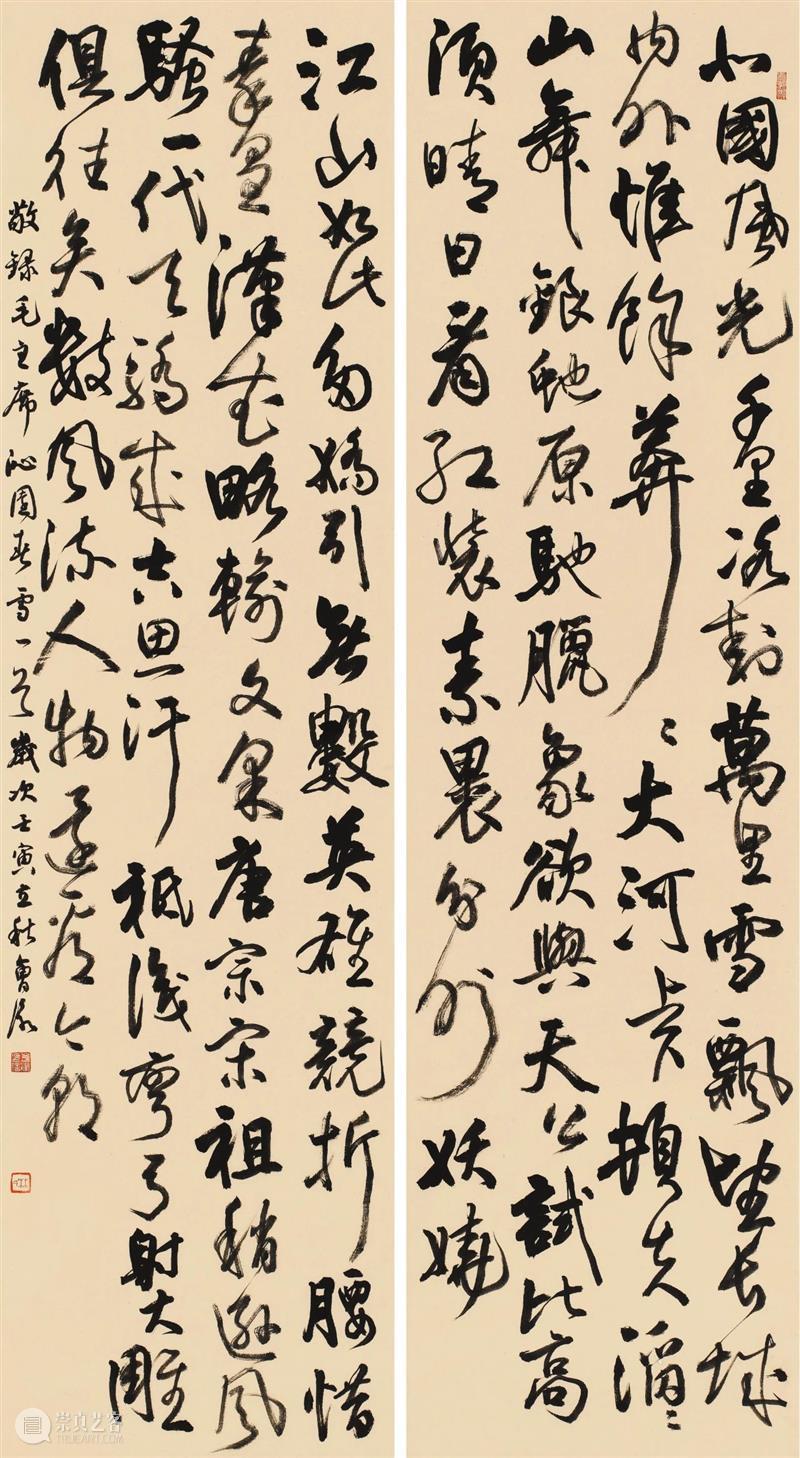 北國風光千里冰封萬里雪飄望長城
内外惟餘莽〻大河上下頓失滔〻
山舞銀蛇原馳臘象欲與天公試比高
須晴日看紅裝素裹分外妖嬈
江山如此多嬌引無數英雄競折腰惜
秦皇漢武略輸文采唐宗宋祖稍遜風
騷一代天驕成吉思汗祇識彎弓射大雕
俱往矣數風流人物還看今朝
敬録毛主席沁園春雪一首歲次壬寅立秋
崇真艺客
TRUEART.COM